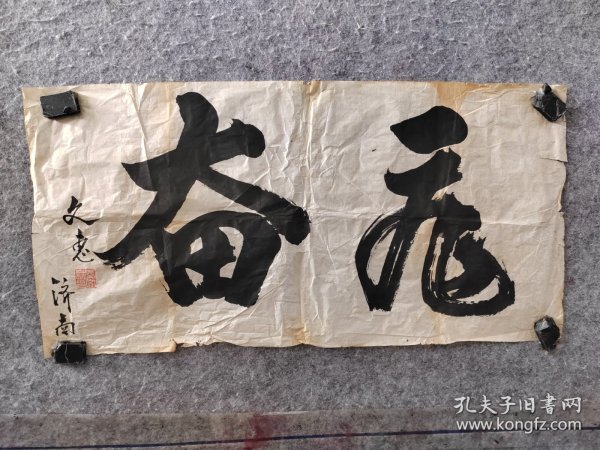 奋
文惠
济南
孔夫子旧书网
www.kongfz.com